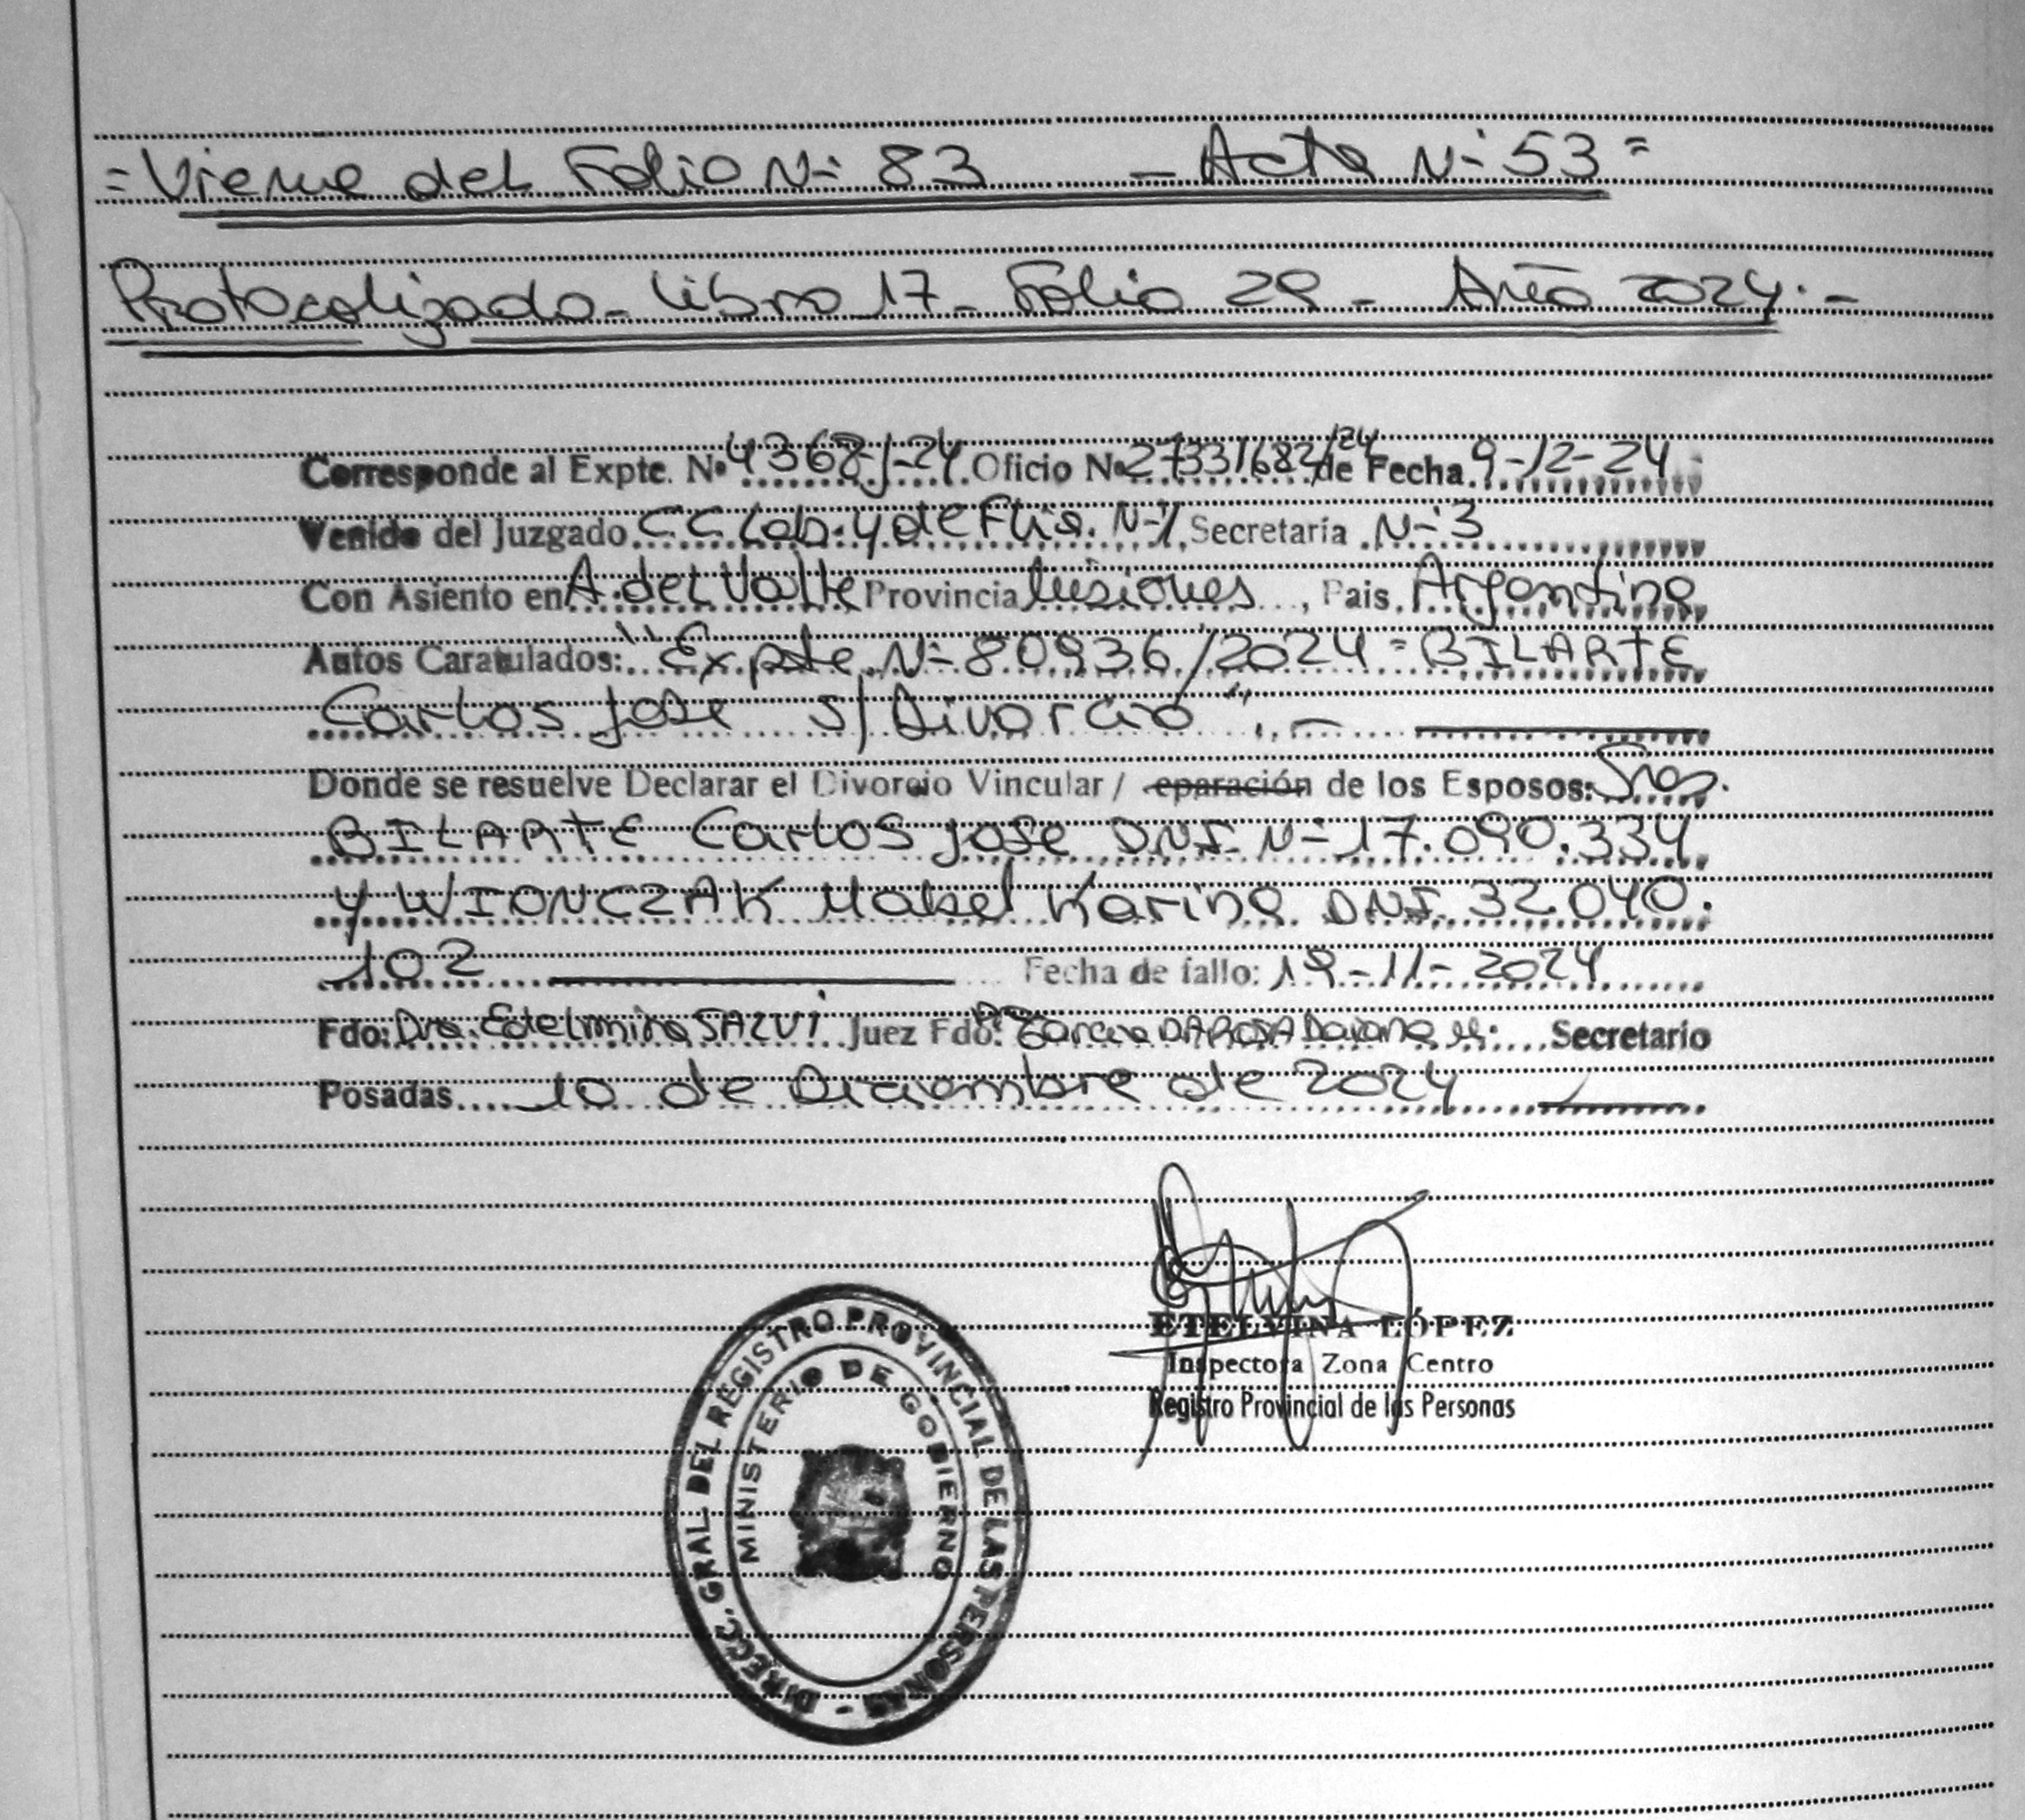 = Viene del Folio Nº 83 - Acta Nº 53 =
Protocolizado - Libro 17 - Folio 29 - Año 2024. -
Corresponde al Expte. Nº 4368-J-24 Oficio Nº 2733/682/24 de Fecha 9-12-24
Venido del Juzgado CC Lab. y de Flia. Nº 1 Secretaría Nº 3
Con Asiento en A. del Valle Provincia Misiones, Pais Argentina
Autos Caratulados: "Expte Nº 80936/2024 = BILARTE
Carlos Jose S/ Divorcio". -
Donde se resuelve Declarar el Divorcio Vincular / eparación de los Esposos: Sres.
BILARTE Carlos Jose DNI. Nº 17.090.334
y WIONCZAK Mabel Karina DNI. 32.040.
102 Fecha de fallo: 19-11-2024
Fdo: Dra. Edelmira SALVI Juez Fdo: Garcia DAROSA Daiana M: Secretario
Posadas 10 de Diciembre de 2024
ETELVINA LÓPEZ
Inspectora Zona Centro
Registro Provincial de las Personas
DIRECC. GRAL DEL REGISTRO PROVINCIAL DE LAS PERSONAS -
MINISTERIO DE GOBIERNO